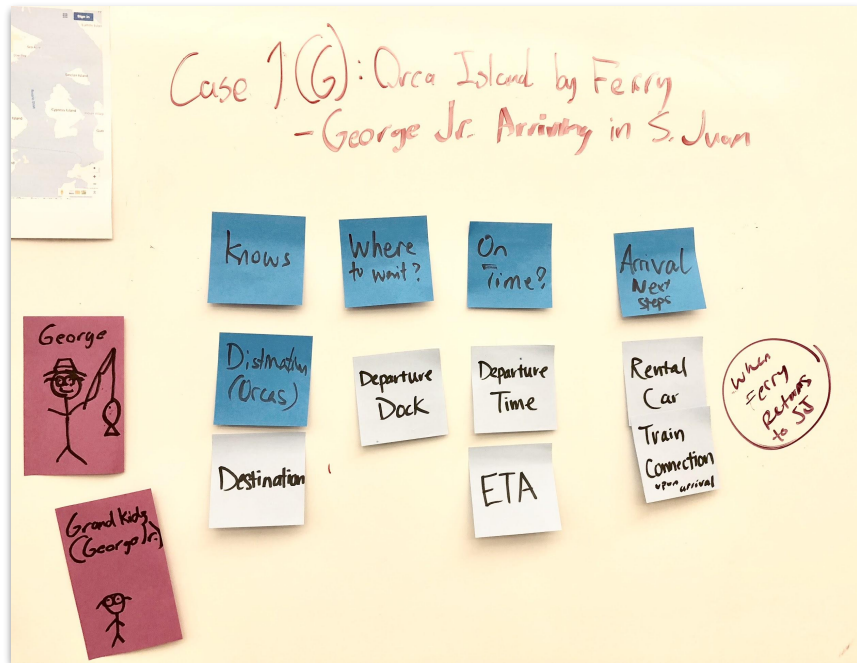 Sign in
Case 1(G): Orca Island by Ferry
- George Jr. Arriving in S. Juan
Knows
Where
to wait?
On
Time?
Arrival
Next
steps
George
Distination
(Orcas)
Departure
Dock
Departure
Time
Rental
Car
When
Ferry
Returns
to SJ
Destination
ETA
Train
Connection
upon arrival
Grand Kids
(George Jr.)